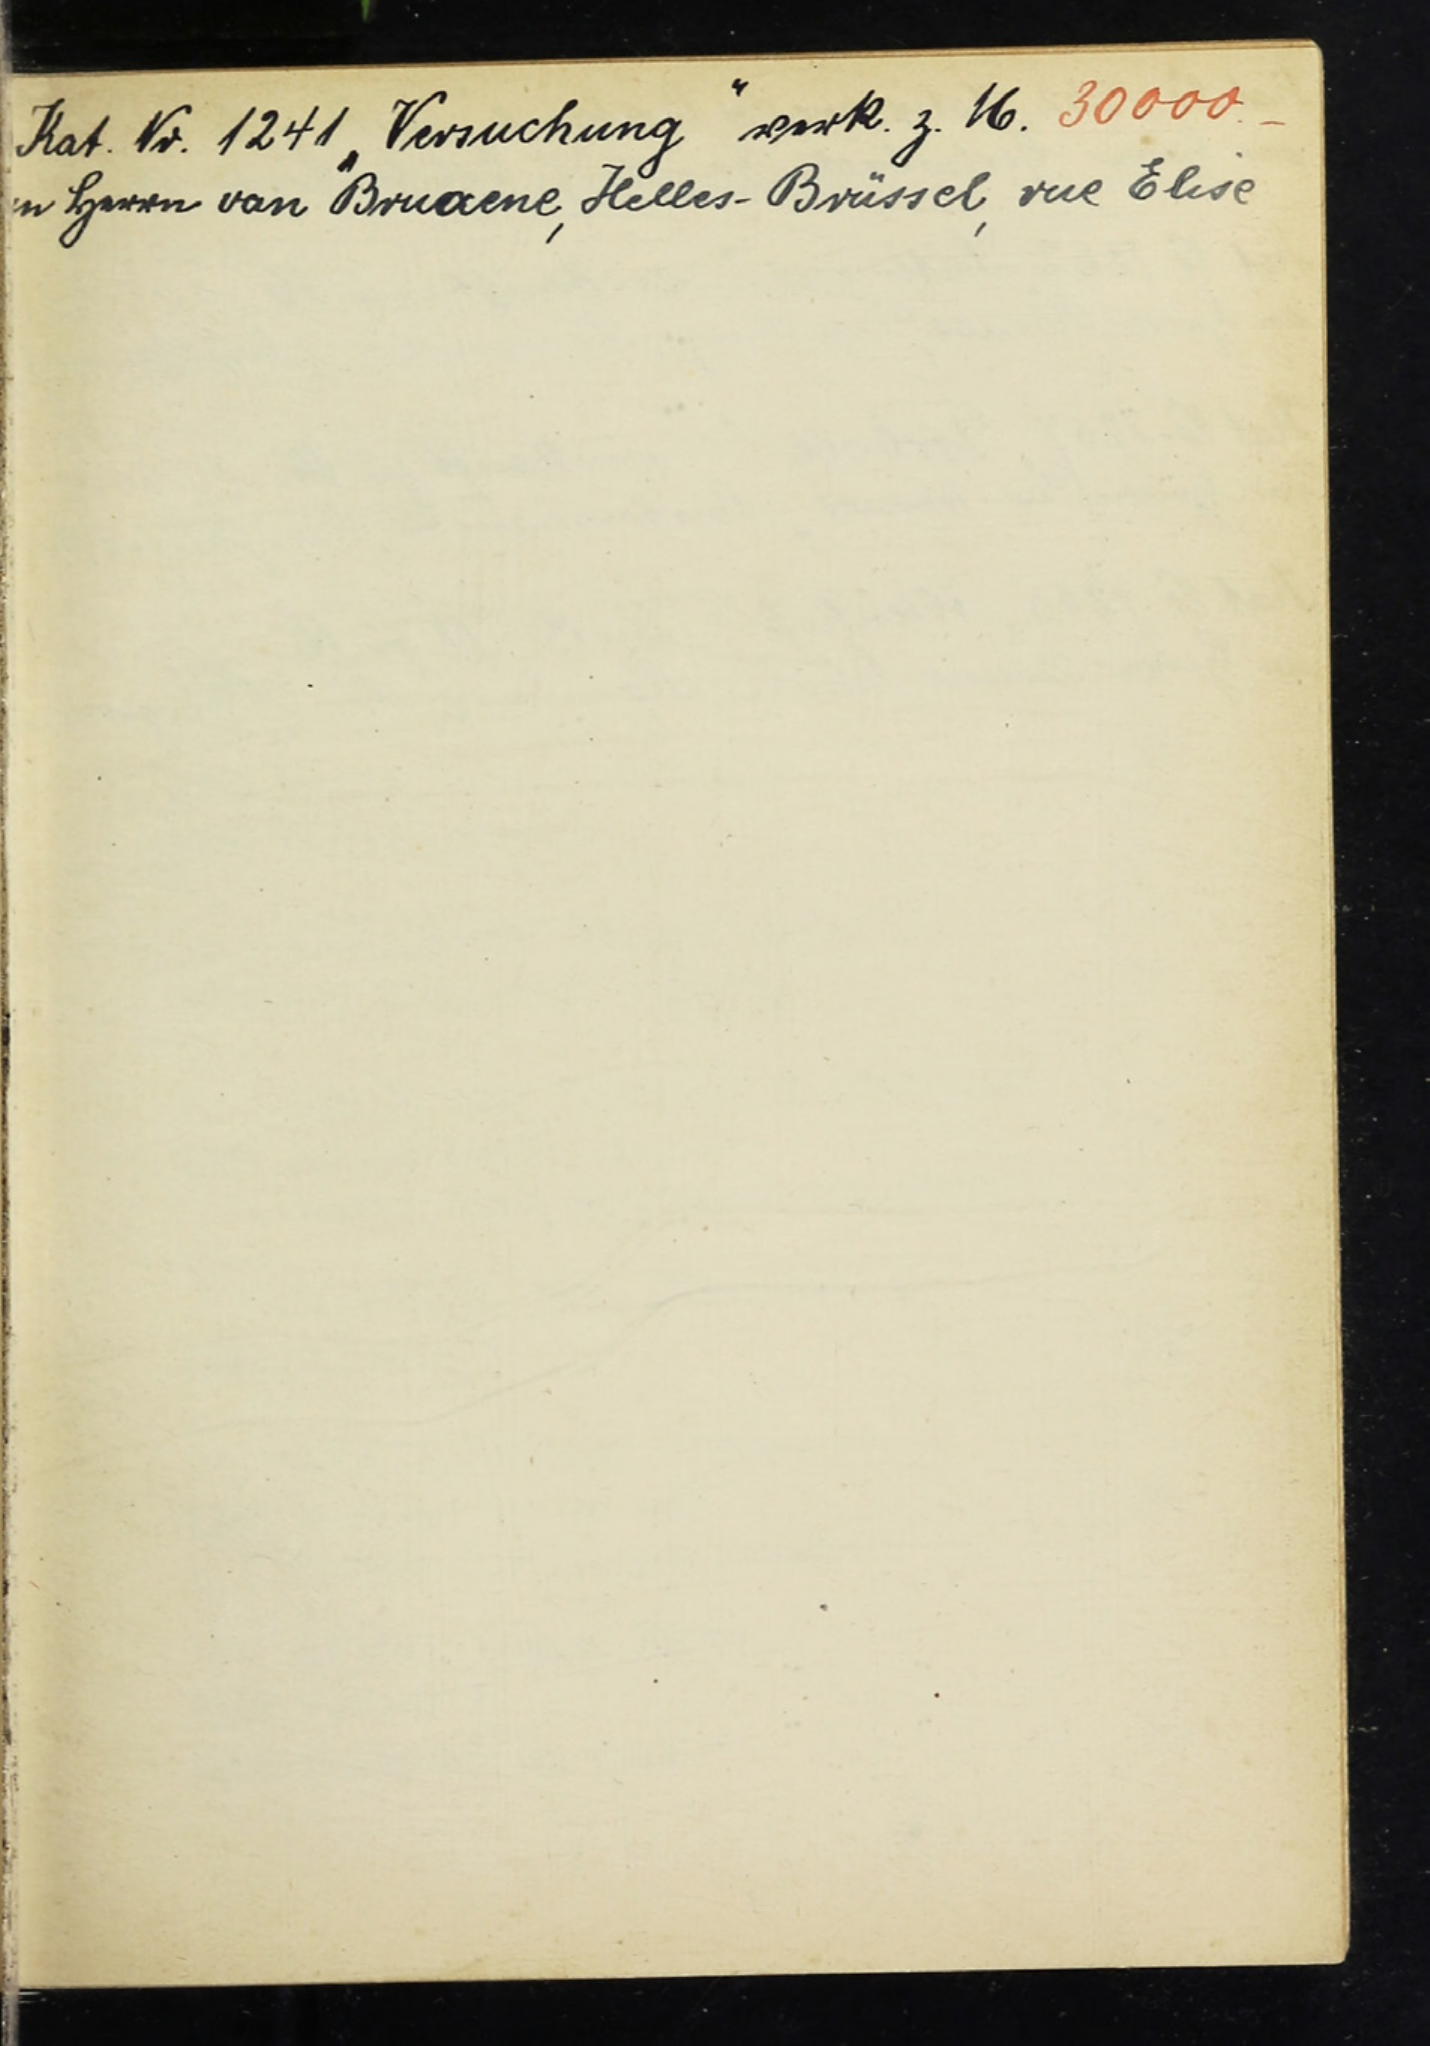 Kat. Nr. 1241 „Versuchung" verk. z. M. 30000.–
n Herrn van Bruaene, Helles-Brüssel, rue Elise